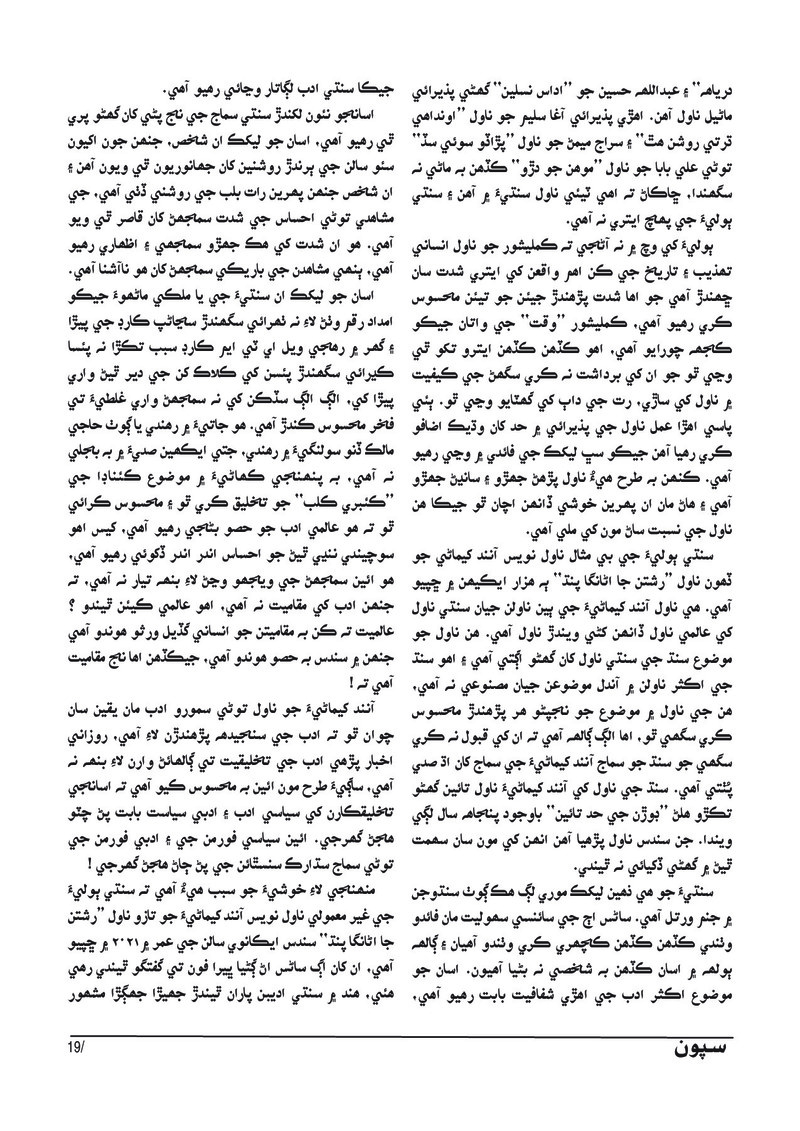 درياهہ” ۽ عبدالله حسين جو ”اداس نسلين” گھڻي پذيرائي
ماڻيل ناول آهن. اهڙي پذيرائي آغا سليم جو ناول ”اونداهي
ڌرتي روشن هٿ” ۽ سراج ميمڻ جو ناول ”پڙاڏو سوئي سڏ”
توڻي علي بابا جو ناول ”موهن جو دڙو” ڪڏهن به ماڻي نہ
سگھندا، ڇاڪاڻ ته اهي ٽيئي ناول سنڌيءَ ۾ آهن ۽ سنڌي
ٻوليءَ جي پهچ ايتري نہ آهي.
ٻوليءَ کي وچ ۾ نہ آڻجي ته ڪمليشور جو ناول انساني
تهذيب ۽ تاريخ جي ڪن اهم واقعن کي ايتري شدت سان
ڇهندڙ آهي جو اها شدت پڙهندڙ جيئن جو تيئن محسوس
ڪري رهيو آهي، ڪمليشور ”وقت” جي واتان جيڪو
ڪجهہ چورايو آهي، اهو ڪڏهن ڪڏهن ايترو تکو ٿي
وڃي ٿو جو ان کي برداشت نہ ڪري سگھڻ جي ڪيفيت
۾ ناول کي ساڙي، رت جي داٻ کي گھٽايو وڃي ٿو. ٻئي
پاسي اهڙا عمل ناول جي پذيرائي ۾ حد کان وڌيڪ اضافو
ڪري رهيا آهن جيڪو سڀ ليکڪ جي فائدي ۾ وڃي رهيو
آهي. ڪنهن به طرح هيءُ ناول پڙهڻ جهڙو ۽ سانڍڻ جهڙو
آهي ۽ هاڻ مان ان پهرين خوشي ڏانهن اچان ٿو جيڪا هن
ناول جي نسبت ساڻ مون کي ملي آهي.
سنڌي ٻوليءَ جي بي مثال ناول نويس آنند کيماڻي جو
ڏهون ناول ”رشتن جا اڻانگا پنڌ” ٻه هزار ايڪيهن ۾ ڇپيو
آهي. هي ناول آنند کيماڻيءَ جي ٻين ناولن جيان سنڌي ناول
کي عالمي ناول ڏانهن کڻي ويندڙ ناول آهي. هن ناول جو
موضوع سنڌ جي سنڌي ناول کان گھڻو اڳتي آهي ۽ اهو سنڌ
جي اڪثر ناولن ۾ آندل موضوعن جيان مصنوعي نہ آهي،
هن جي ناول ۾ موضوع جو نجپڻو هر پڙهندڙ محسوس
ڪري سگھي ٿو، اها الڳ ڳالهہ آهي ته ان کي قبول نہ ڪري
سگھي جو سنڌ جو سماج آنند کيماڻيءَ جي سماج کان اڌ صدي
پٺتي آهي. سنڌ جي ناول کي آنند کيماڻيءَ ناول تائين گھڻو
تڪڙو هلڻ ”ٻوڙن جي حد تائين” باوجود پنجاهہ سال لڳي
ويندا. جن سندس ناول پڙهيا آهن انهن کي مون سان سهمت
ٿيڻ ۾ گھڻي ڏکيائي نہ ٿيندي.
سنڌيءَ جو هي ذهين ليکڪ موري لڳ هڪ ڳوٺ سنڌوجن
۾ جنم ورتل آهي. ساڻس اڄ جي سائنسي سهوليت مان فائدو
وٺندي ڪڏهن ڪڏهن ڪچهري ڪري وٺندو آهيان ۽ ڳالهہ
ٻولهہ ۾ اسان ڪڏهن به شخصي نہ بڻيا آهيون. اسان جو
موضوع اڪثر ادب جي اهڙي شفافيت بابت رهيو آهي،
جيڪا سنڌي ادب لڳاتار وڃائي رهيو آهي.
اسانجو نئون لکندڙ سنڌي سماج جي نج پڻي کان گھڻو پري
ٿي رهيو آهي، اسان جو ليکڪ ان شخص، جنهن جون اکيون
سئو سالن جي ٻرندڙ روشنين کان جهانوريون ٿي ويون آهن ۽
ان شخص جنهن پهرين رات بلب جي روشني ڏٺي آهي، جي
مشاهدي توڻي احساس جي شدت سمجهڻ کان قاصر ٿي ويو
آهي. هو ان شدت کي هڪ جهڙو سمجهي ۽ اظهاري رهيو
آهي، ٻنهي مشاهدن جي باريڪي سمجهڻ کان هو ناآشنا آهي.
اسان جو ليکڪ ان سنڌيءَ جي يا ملڪي ماڻهوءَ جيڪو
امداد رقم وٺڻ لاءِ نہ ٺهرائي سگھندڙ سڃاڻپ ڪارڊ جي پيڙا
۽ گھر ۾ رهجي ويل اي ٽي ايم ڪارڊ سبب تڪڙا نہ پئسا
ڪيرائي سگھندڙ پئسن کي ڪلاڪ کن جي دير ٿيڻ واري
پيڙا کي، الڳ الڳ سڏڪن کي نہ سمجهڻ واري غلطيءَ تي
فاخر محسوس ڪندڙ آهي. هو جاتيءَ ۾ رهندي يا ڳوٺ حاجي
مالڪ ڏنو سولنگيءَ ۾ رهندي، جتي ايڪهين صديءَ ۾ به بجلي
نہ آهي، به پنهنجي ڪهاڻيءَ ۾ موضوع ڪئناڊا جي
”ڪنٽري ڪلب” جو تخليق ڪري ٿو ۽ محسوس ڪرائي
ٿو ته هو عالمي ادب جو حصو بڻجي رهيو آهي، کيس اهو
سوچيندي ننڍي ٿيڻ جو احساس اندر اندر ڏکوئي رهيو آهي،
هو ائين سمجهڻ جي ويجهو وڃڻ لاءِ بنهہ تيار نہ آهي، ته
جنهن ادب کي مقاميت نہ آهي، اهو عالمي ڪيئن ٿيندو ؟
عالميت ته ڪن به مقاميتن جو انساني گڏيل ورثو هوندو آهي
جنهن ۾ سندس به حصو هوندو آهي، جيڪڏهن اها نج مقاميت
آهي ته !
آنند کيماڻيءَ جو ناول توڻي سمورو ادب مان يقين سان
چوان ٿو ته ادب جي سنجيدهہ پڙهندڙن لاءِ آهي، روزاني
اخبار پڙهي ادب جي تخليقيت تي ڳالهائڻ وارن لاءِ بنهہ نہ
آهي، ساڳيءَ طرح مون ائين به محسوس ڪيو آهي ته اسانجي
تخليقڪارن کي سياسي ادب ۽ ادبي سياست بابت پڻ چٽو
هجڻ گھرجي. ائين سياسي فورمن جي ۽ ادبي فورمن جي
توڻي سماج سڌارڪ سنسٿائن جي پڻ ڄاڻ هجڻ گھرجي !
منهنجي لاءِ خوشيءَ جو سبب هيءُ آهي ته سنڌي ٻوليءَ
جي غير معمولي ناول نويس آنند کيماڻيءَ جو تازو ناول ”رشتن
جا اڻانگا پنڌ” سندس ايڪانوي سالن جي عمر ۾ ۲۰۲۱ ۾ ڇپيو
آهي، ان کان اڳ ساڻس اڻ ڳڻيا ڀيرا فون تي گفتگو ٿيندي رهي
هئي، هند ۾ سنڌي اديبن پاران ٿيندڙ جهيڙا جهڳڙا مشهور
سپون
19/